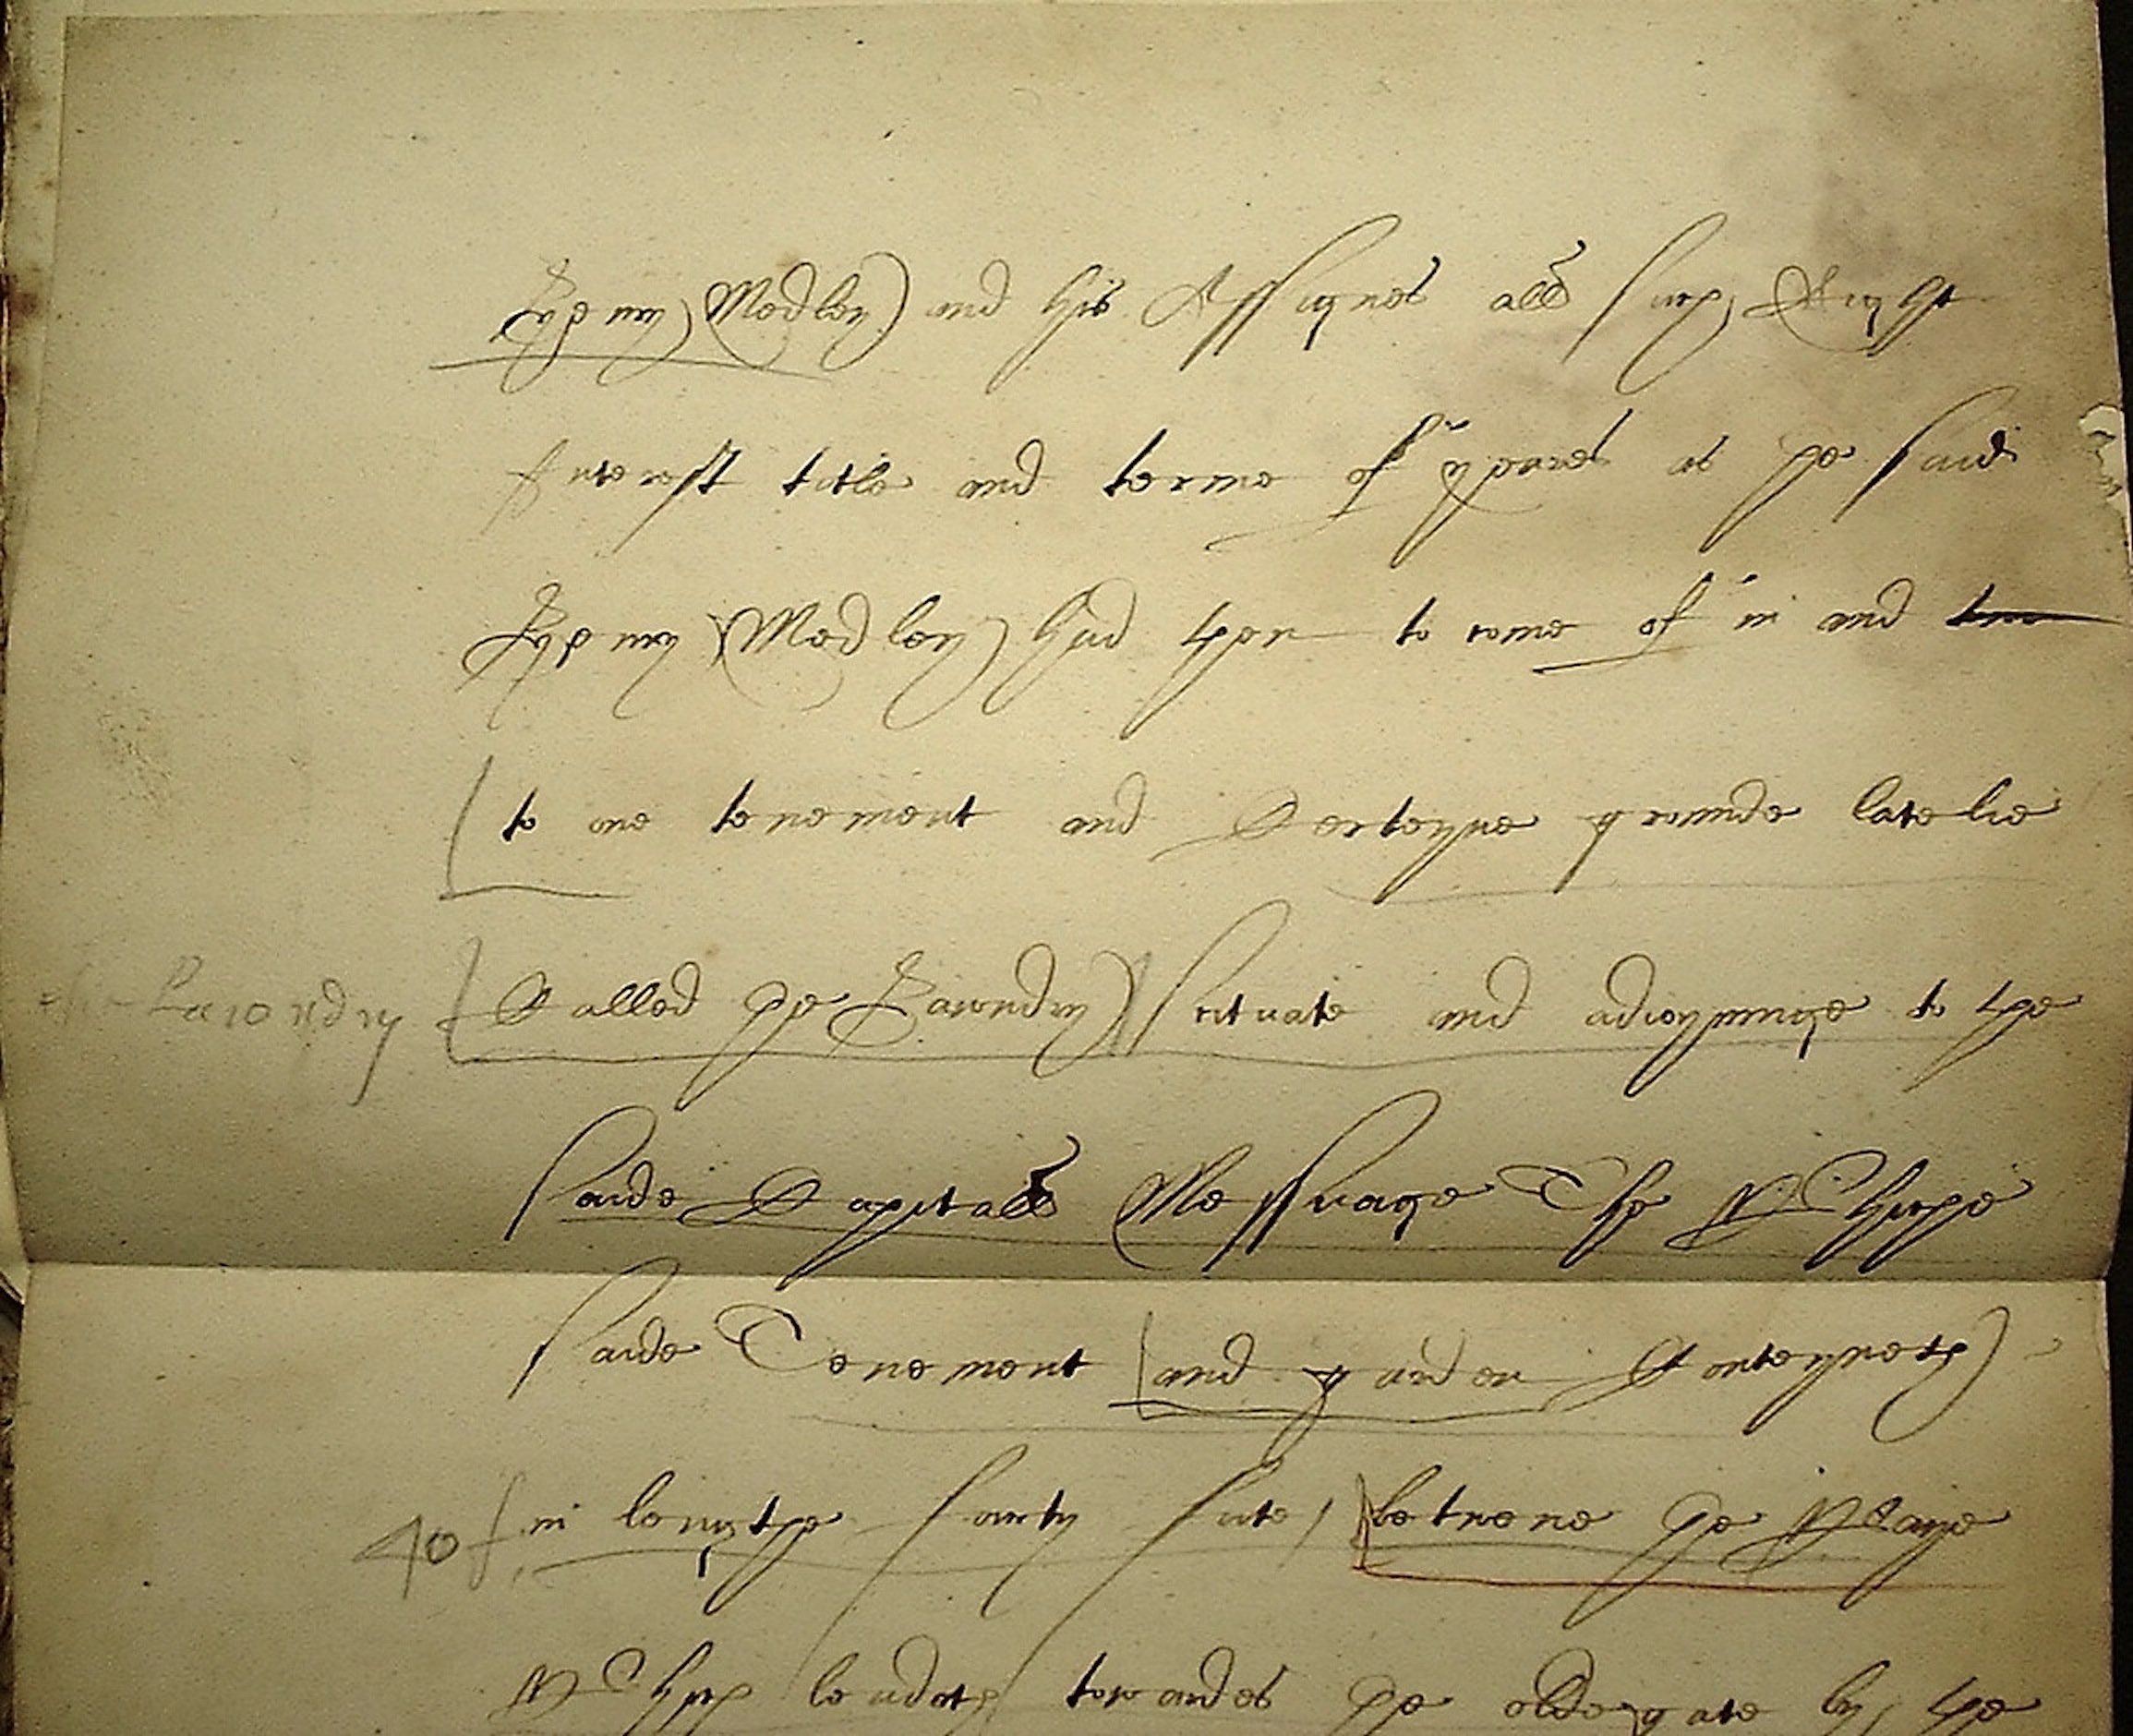 Henry Medley) and his Assignes all such Right
Interest title and terme of yeares as the said
Henry (Medley) had then to come of in and
to one tenement and Certeyne grounde latelie
the Lawndry [Called the Lawndry) Scituate and adioyninge to the
saide Capitall Messuage The Whiche
saide Tenement (and garden Conteyneth)
40 [in lengthe fourty fute, [betwene the Waye
Whych leadeth towardes the olde gate by the